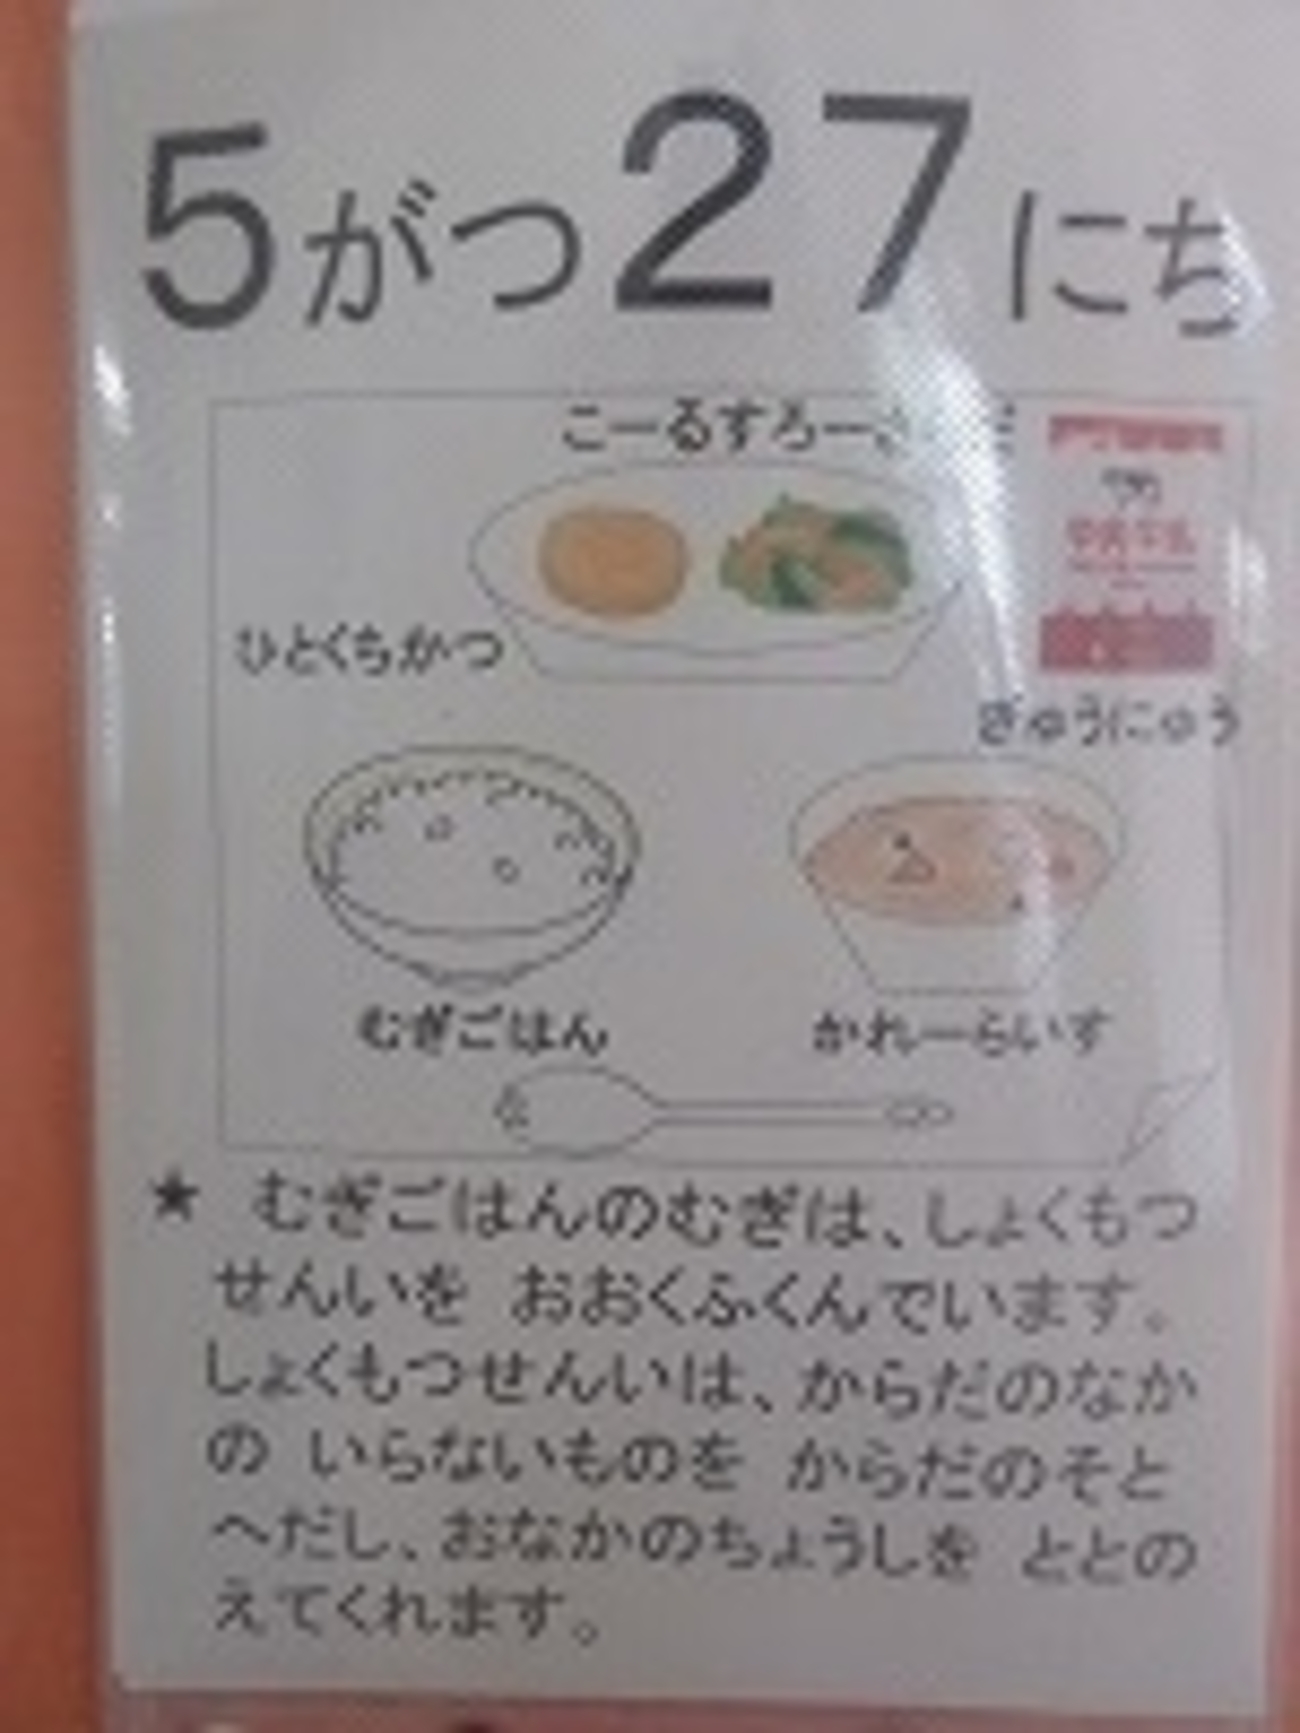 5がつ27にち
こーるすろー
ひとくちかつ
ぎゅうにゅう
むぎごはん
かれーらいす
★ むぎごはんのむぎは、しょくもつ
せんいを おおくふくんでいます。
しょくもつせんいは、からだのなか
の いらないものを からだのそと
へだし、おなかのちょうしを ととの
えてくれます。